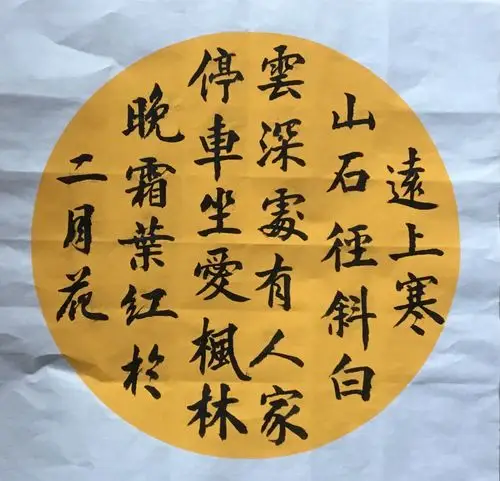 遠上寒
山石徑斜白
雲深處有人家
停車坐愛楓林
晚霜葉紅於
二月花